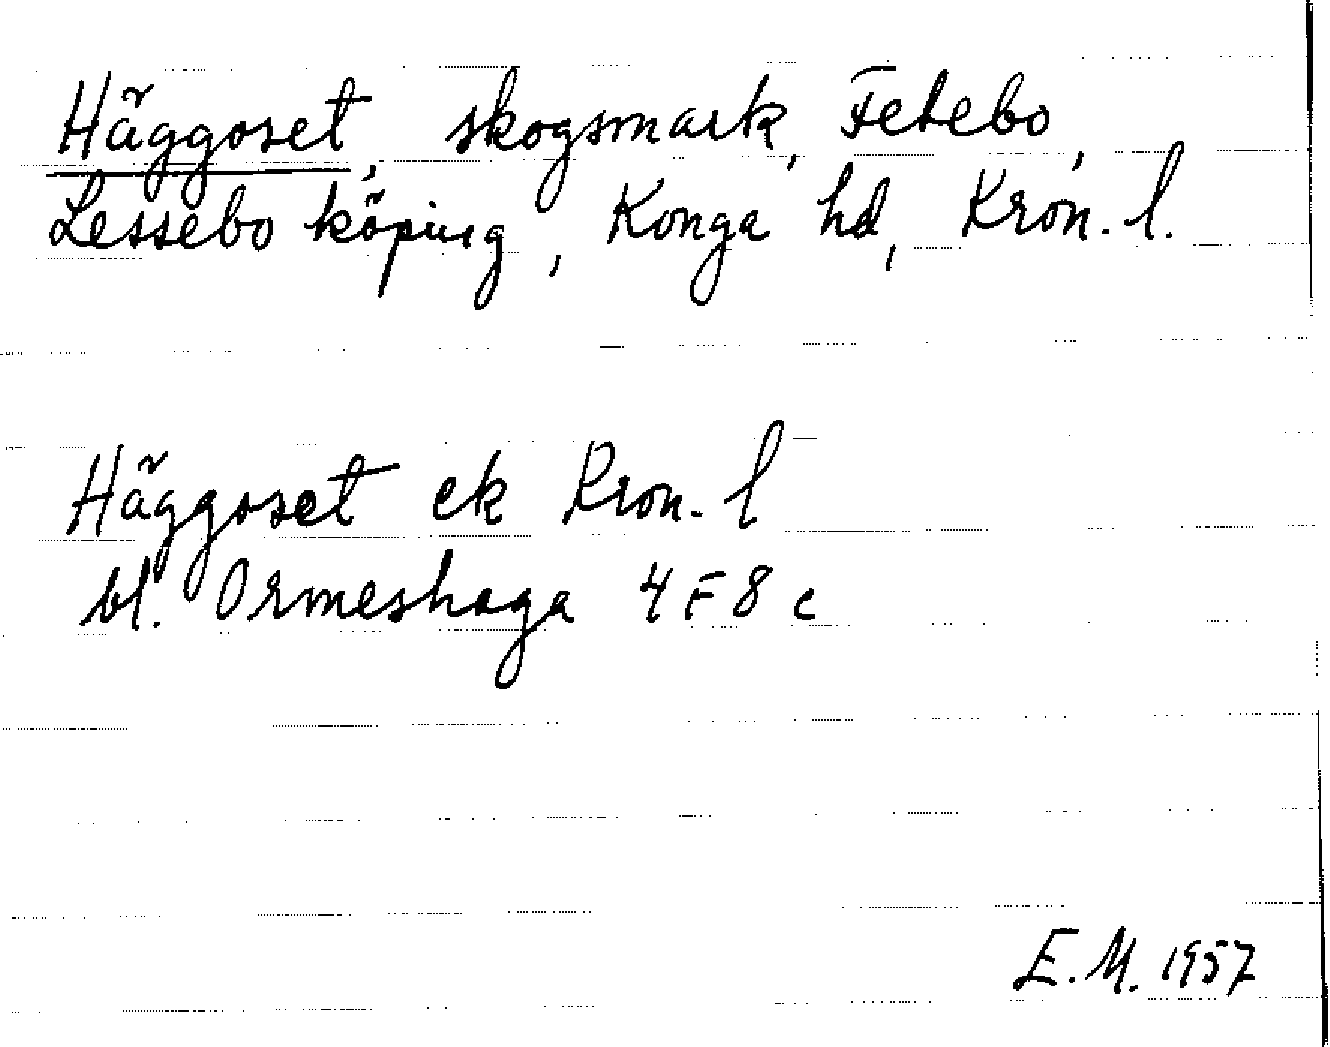 Häggoset, skogsmark, Fetebo,
Lessebo köping, Konga hd, Kron. l.
Häggoset ek Kron. l
bl. Ormeshaga 4F8c
E.M. 1957